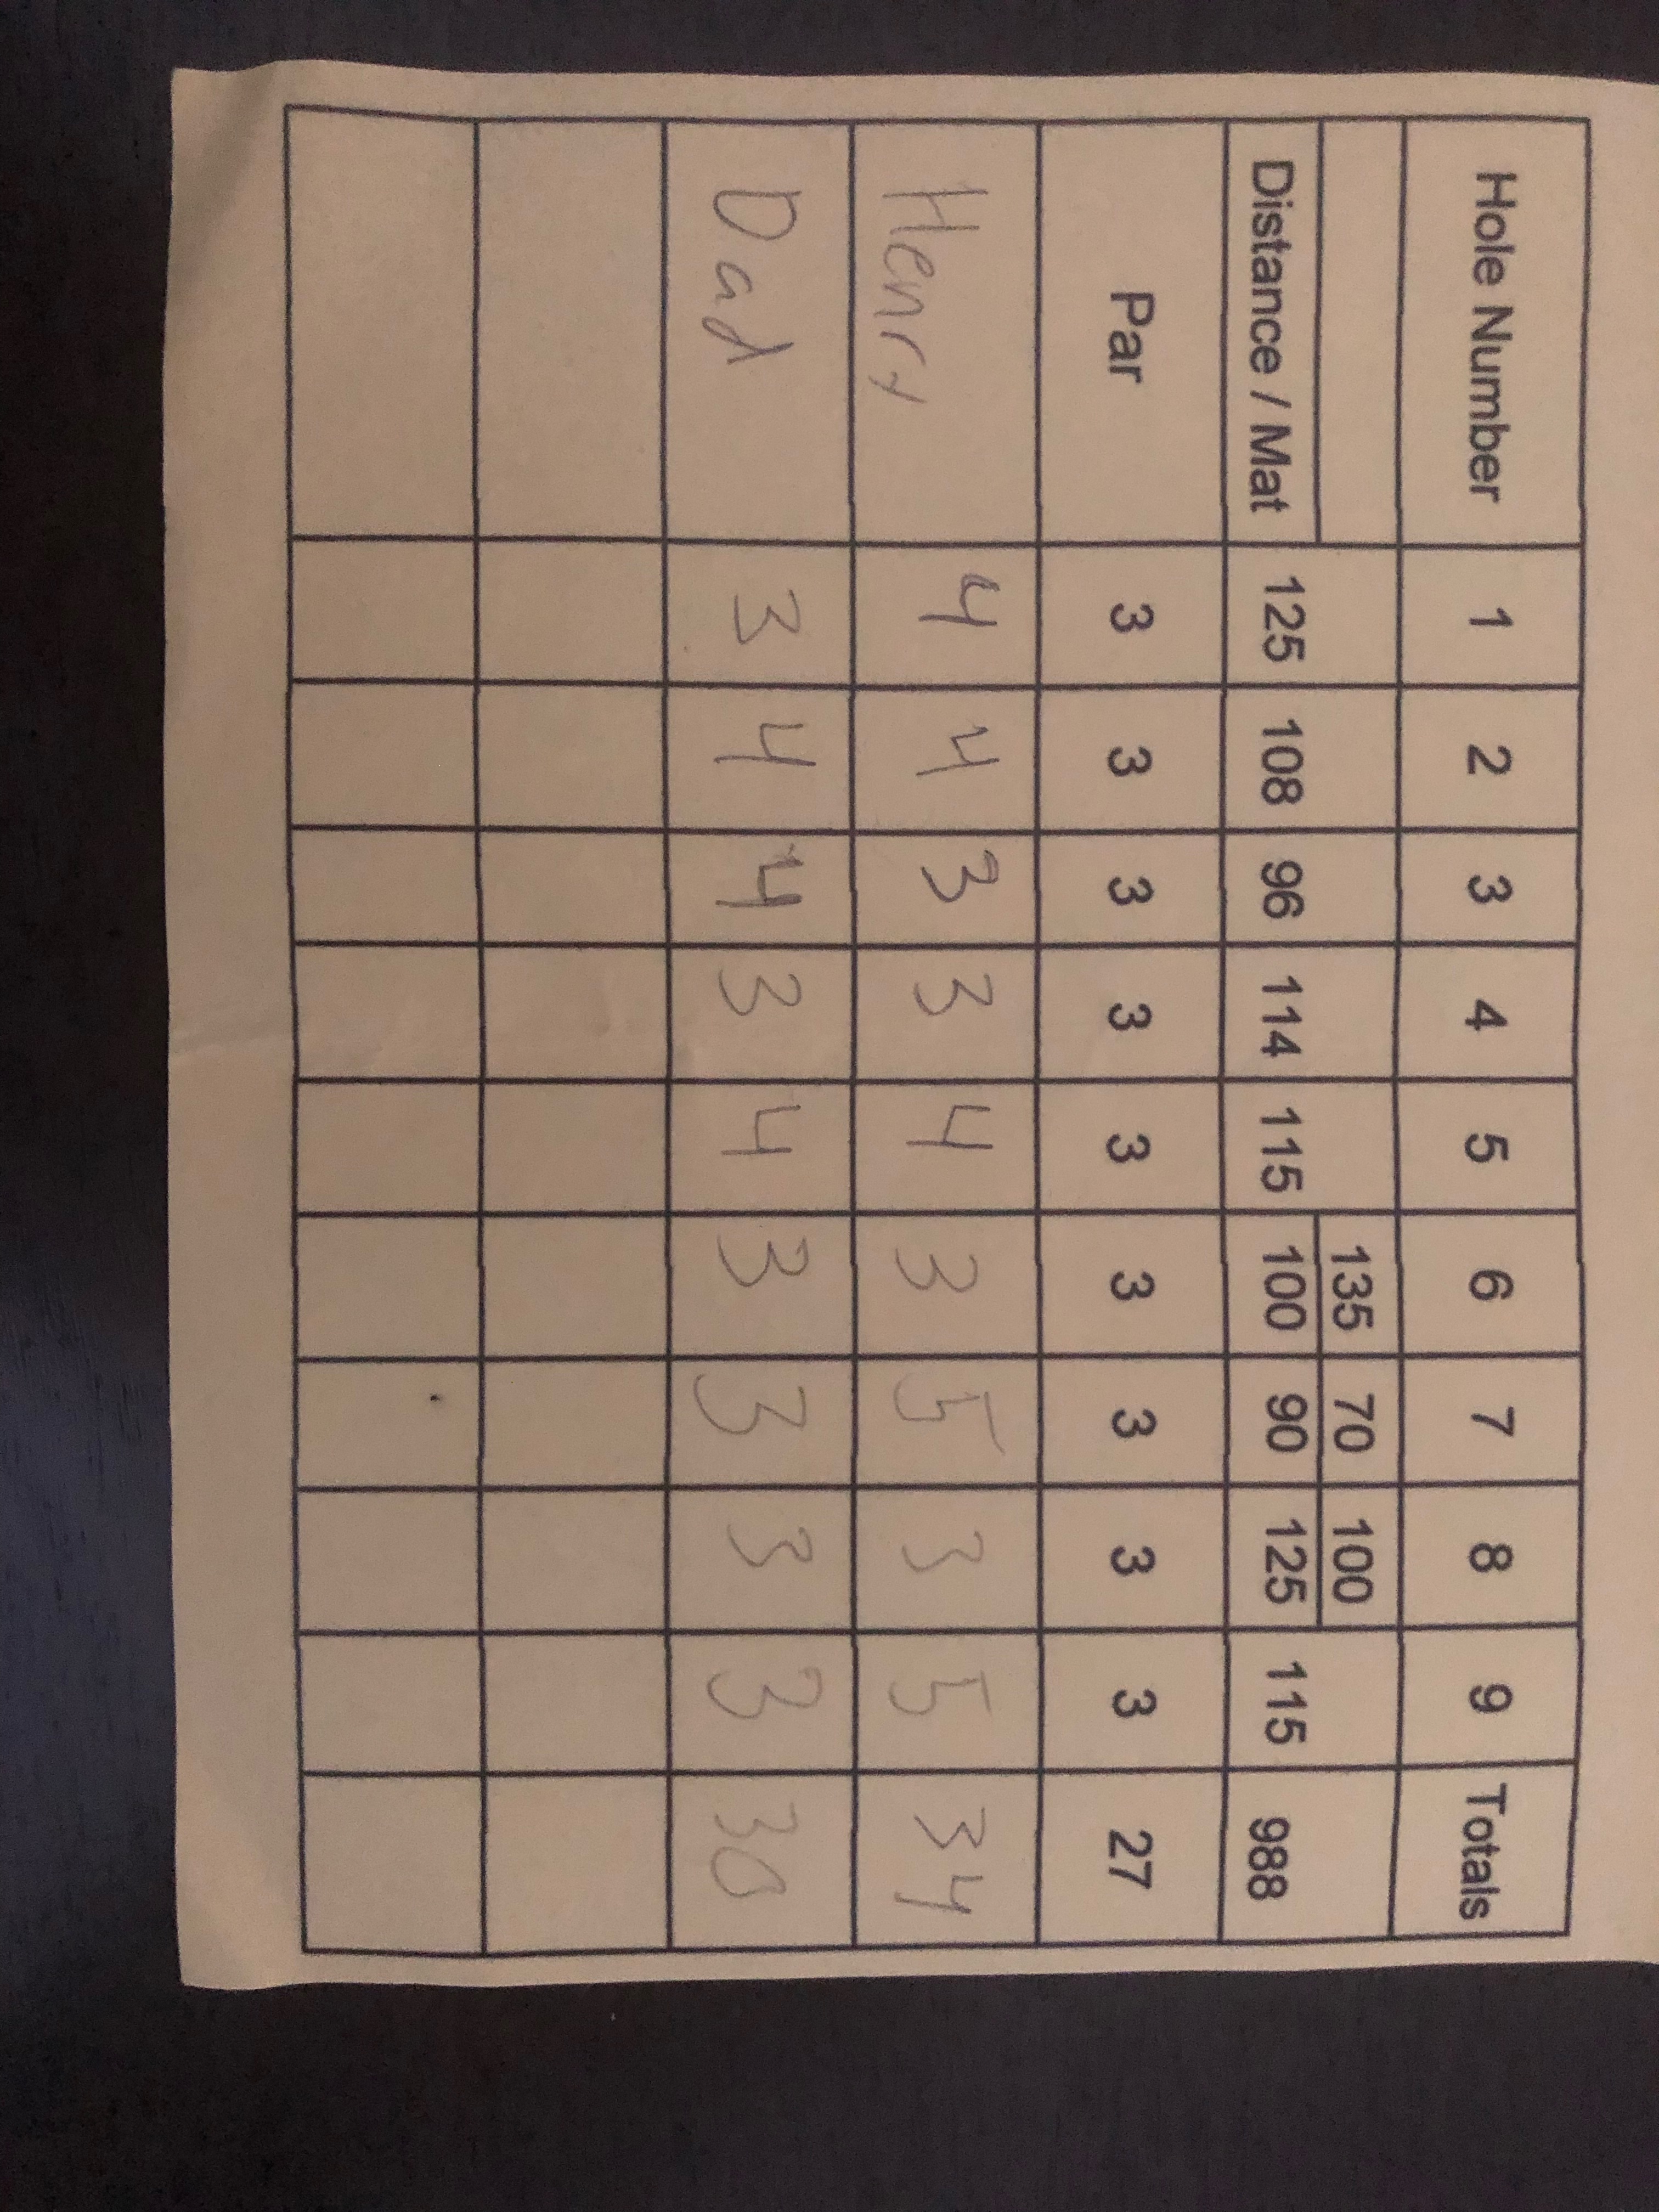 Hole Number 1 2 3 4 5 6 7 8 9 Totals
135 70 100
Distance / Mat 125 108 96 114 115 100 90 125 115 988
Par 3 3 3 3 3 3 3 3 3 27
Henry 4 4 3 3 4 3 5 3 5 34
Dad 3 4 4 3 4 3 3 3 3 30